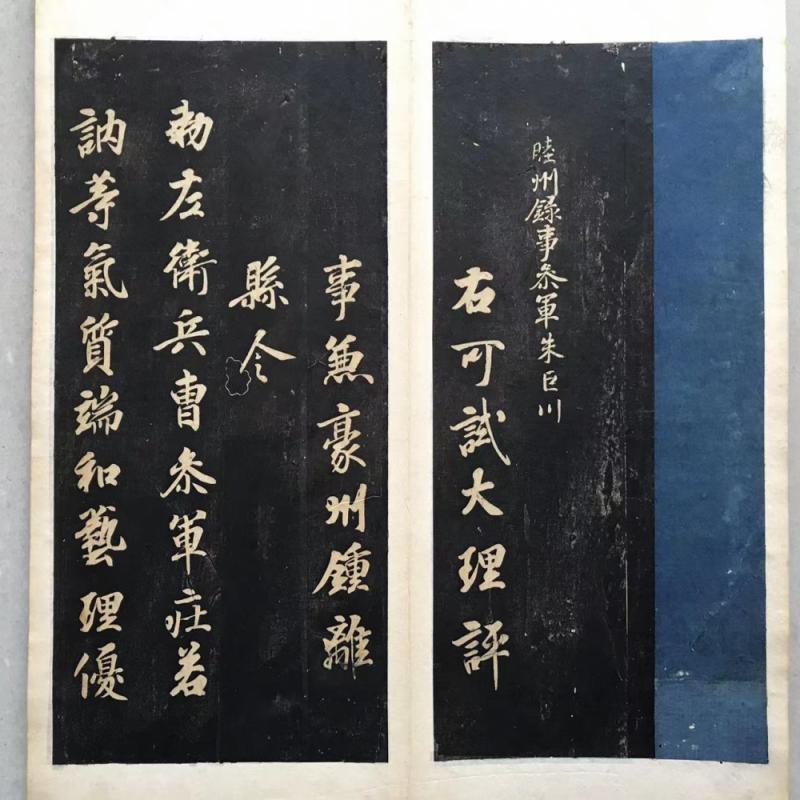 睦州錄事叅軍朱巨川
右可試大理評
事兼豪州鍾離
縣令
勑左衛兵曹叅軍庄若
訥等氣質端和藝理優